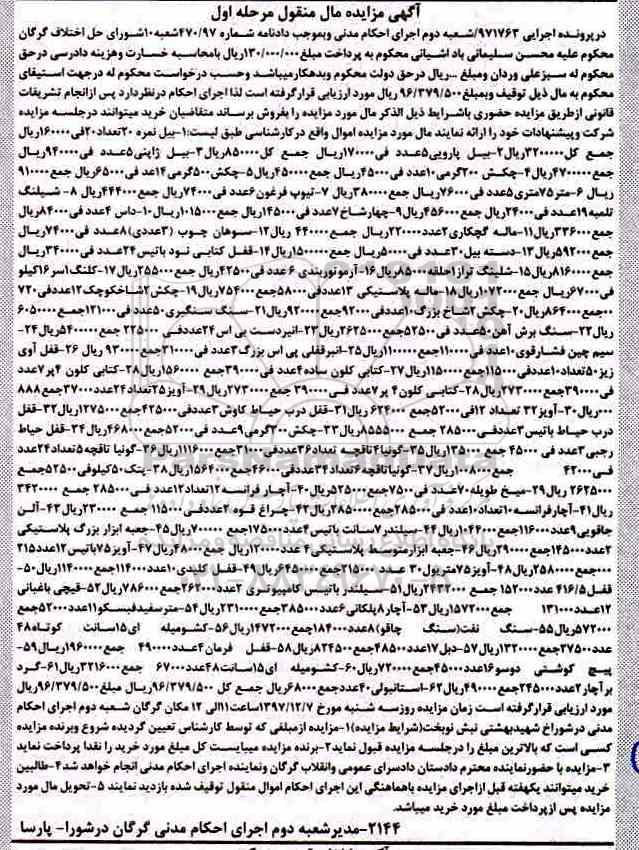 آگهی مزایده مال منقول مرحله اول
درپرونده اجرایی ۹۷۱۷۶۳/شعبه دوم اجرای احکام مدنی وبموجب دادنامه شماره ۴۷۰/۹۷شعبه۱۰شورای حل اختلاف گرگان
محکوم علیه محسن سلیمانی یاد اشیانی محکوم به پرداخت مبلغ۱۳۰/۰۰۰/۰۰۰ریال بامحاسبه خسارت وهزینه دادرسی درحق
محکوم له سبزعلی وردان ومبلغ ...ریال درحق دولت محکوم وبدهکارمیباشد وحسب درخواست محکوم له درجهت استیفای
محکوم به مال ذیل توقیف وبمبلغ۹۶/۳۷۹/۵۰۰ ریال مورد ارزیابی قرارگرفته است لذا اجرای احکام درنظردارد پس ازانجام تشریفات
قانونی ازطریق مزایده حضوری باشرایط ذیل الذکر مال مورد مزایده را بفروش برساند متقاضیان خرید میتوانند درجلسه مزایده
شرکت وپیشنهادات خود را ارائه نمایند مال مورد مزایده اموال واقع درکارشناسی طبق لیست:۱-بیل نمره ۲۰تعداد۲۰فی۱۶۰۰۰۰ریال
جمع کل۳۲۰۰۰۰۰ریال۲-بیل پارویی۵عدد فی۱۷۰۰۰۰ریال جمع کل۸۵۰۰۰۰ریال۳-بیل ژاپنی۵عدد فی۹۴۰۰۰ریال
جمع۴۷۰۰۰۰ریال۴-چکش ۲۰۰گرمی۱۰عدد فی۴۵۰۰۰ریال جمع۴۵۰۰۰۰ریال۵-چکش۵۰۰گرمی۱۴عد فی۶۵۰۰۰ریال جمع۹۱۰۰۰۰
ریال ۶-متر۷۵متری۵عدد فی۷۶۰۰۰ریال جمع۳۸۰۰۰۰ریال ۷-تیوپ فرغون۶عدد فی۷۴۰۰۰ریال جمع۴۴۴۰۰۰ریال ۸- شیلنگ
تلمبه۱۹عدد فی۲۴۰۰۰ریال جمع۴۵۶۰۰۰ریال۹-چهارشاخ۷عدد فی۱۴۵۰۰۰ریال جمع۱۰۱۵۰۰۰ریال۱۰-داس ۴عدد فی۸۴۰۰۰ریال
جمع۳۳۶۰۰۰ریال۱۱-ماله گچکاری۲عدد۲۲۰۰۰۰ریال جمع۴۴۰۰۰۰ ریال۱۲-سوهان چوب (۳عددی)۸عدد فی۷۴۰۰۰ریال
جمع۵۹۲۰۰۰ریال۱۳-دسته بیل۳۰عدد فی۵۰۰۰۰ریال جمع۱۵۰۰۰۰۰ریال۱۴-قفل کتابی نود باتیس۲۴عدد فی۳۴۰۰۰ریال
جمع۸۱۶۰۰۰ریال۱۵-شلینگ تراز۱حلقه۸۵۰۰۰ریال۱۶-آرموتوربندی ۶عدد فی۴۲۵۰۰ریال جمع۲۵۵۰۰۰ریال۱۷-کلنگ۱سر۱۶کیلو
فی۶۷۰۰۰ریال جمع۱۰۷۲۰۰۰ریال۱۸-ماله پلاستیکی ۱۳عددفی۵۸۰۰۰جمع۷۵۴۰۰۰ریال۱۹-چکش۲شاخکوچک۱۲عددفی۷۲۰
۰۰جمع۸۶۴۰۰۰ریال۲۰-چکش۲شاخ بزرگ۱۰عددفی۹۲۰۰۰جمع۹۲۰۰۰۰ریال۲۱-سنگ سنگبری۵۰عدد فی۱۲۱۰۰۰جمع۶۰۵۰۰۰۰
ریال۲۲-سنگ برش آهن۵۰عدد فی۵۲۵۰۰جمع۲۶۲۵۰۰۰ریال۲۳-انبردست بی اس۲۴عددفی ۲۲۵۰۰۰ جمع۵۴۰۰۰۰۰ریال۲۴-
سیم چین فشارقوی۱۰عدد فی۱۱۰۰۰۰جمع۱۱۰۰۰۰۰ریال۲۵-انبرقفلی پی اس بزرگ۳عدد فی۳۱۰۰۰۰جمع۹۳۰۰۰۰ ریال ۲۶-قفل آوی
زیز۵۰تعداد۱۰عددفی۱۱۵۰۰۰جمع۱۱۵۰۰۰۰ریال۲۷-کتابی کلون ساده۴عدد فی۳۹۰۰۰۰ جمع۱۵۶۰۰۰۰ریال۲۸-کتابی کلون ۴پر۷عدد
فی۳۹۰۰۰۰جمع۲۷۳۰۰۰۰ریال۲۸-کتابی کلون۴پر۷عدد فی۳۹۰۰۰۰جمع۲۷۳۰۰۰۰ریال۲۹-آویز۲۵تعداد۲۴عدد۳۷۰۰۰جمع۸۸۸
۰۰۰ریال۳۰-آویز۳۲ تعداد ۱۲فی۵۲۰۰۰جمع ۶۲۴۰۰۰ ریال۳۱-قفل درب حیاط کاوش۳عددفی۴۲۵۰۰۰جمع۱۲۷۵۰۰۰ریال۳۲-قفل
درب حیاط باتیس۳عددفی۲۸۵۰۰۰ جمع ۸۵۵۰۰۰ریال۳۳-چکش۳۰۰گرمی۹عدد فی۵۲۰۰۰جمع۴۶۸۰۰۰ریال۳۴-قفل حیاط
رجبی۳عدد فی ۴۵۰۰۰ جمع ۱۳۵۰۰۰ریال۳۵-گونیا۴تاقچه تعداد۳۶عددفی۳۱۰۰۰جمع۱۱۱۶۰۰۰ریال۳۶-گونیا تاقچه۵تعداد۲۴عدد
فی۴۲۰۰۰ جمع۱۰۰۸۰۰۰ریال۳۷-گونیاتاقچه۶تعداد۳۴عددفی۴۶۰۰۰جمع۱۵۶۴۰۰۰ریال۳۸-پتک۵۰کیلوفی۵۲۵۰۰جمع
۲۶۲۵۰۰۰ ریال۳۹-میخ طویله۷۰عدد فی۷۵۰۰جمع۵۲۵۰۰۰ریال۴۰-آچار فرانسه۱۲تعداد۱۲عدد فی۲۸۵۰۰۰ جمع ۳۴۲۰۰۰۰
ریال۴۱-آچارفرانسه۱۰تعداد۱۰عدد فی۲۸۵۰۰۰جمع۲۸۵۰۰۰۰ریال۴۲-چراغ قوه ۲عددفی۱۱۵۰۰۰ جمع ۲۳۰۰۰۰ریال۴۳-آلن
چاقویی۹عدد۱۱۶۰۰۰جمع۱۰۴۴۰۰۰ریال۴۴-سیلندر۷سانت باتیس۴عدد۱۷۵۰۰۰جمع ۷۰۰۰۰۰ریال۴۵-جعبه ابزار بزرگ پلاستیکی
۲عدد۱۴۵۰۰۰جمع۲۹۰۰۰۰ریال۴۶-جعبه ابزارمتوسط پلاستیکی۴ عدد۱۲۰۰۰۰ریال جمع۴۸۰۰۰۰ریال۴۷-آویز۷۵باتیس۱۲عدد۲۱۵
۰۰۰جمع۲۵۸۰۰۰۰ریال۴۸-آویز۷۵متریول۳۰ عدد ۲۱۵۰۰۰جمع۶۴۵۰۰۰۰ریال۴۹-قفل کلیدی۱۰عدد۱۱۴۰۰۰جمع۱۱۴۰۰۰۰ریال۵۰-
قفل۴۱۶/۵عدد۱۵۲۰۰۰ جمع۲۴۳۲۰۰۰ ریال۵۱-سیلندر باتیس کامپیوتری ۳عدد۲۶۲۰۰۰جمع۷۸۶۰۰۰ریال۵۲-قیچی باغبانی
۱۲عدد۱۳۱۰۰۰ جمع۱۵۷۲۰۰۰ریال ۵۳-آچار۸پلکانی۶عدد۳۸۵۰۰۰جمع۲۳۱۰۰۰۰ریال۵۴-مترسفیدفیسکو۱۱عدد۵۲۰۰۰جمع
۵۷۲۰۰۰ریال۵۵-سنگ نفت(سنگ چاقو)۸عدد۱۸۴۰۰۰جمع۱۴۷۲۰۰۰ریال۵۶-کشومیله ای۱۵سانت کوتاه۴۸
عدد۲۷۵۰۰جمع۱۳۲۰۰۰۰ریال۵۷-دبل۱۷عدد۴۸۵۰۰جمع۸۲۴۵۰۰ریال۵۸-قفل فرمان۴عدد۴۹۰۰۰۰ جمع۱۹۶۰۰۰۰ریال۵۹-
پیچ گوشتی دوسو۱۶عدد۴۵۰۰۰جمع۷۲۰۰۰۰ریال۶۰-کشومیله ای۱۵سانت۴۸عدد۶۷۰۰۰ جمع۳۲۱۶۰۰۰ریال۶۱-گرد
برآچار۲عدد۲۴۵۰۰۰جمع۴۹۰۰۰۰ریال۶۲-استانبولی۴۰عددجمع۶۸۰۰۰۰ریال جمع کل ۹۶/۳۷۹/۵۰۰ریال مبلغ ۹۶/۳۷۹/۵۰۰ریال
مورد ارزیابی قرارگرفته است زمان مزایده روزسه شنبه مورخ ۱۳۹۷/۱۲/۷ساعت۱۱الی ۱۲ مکان گرگان شعبه دوم اجرای احکام
مدنی درشوراخ شهیدبهشتی نبش نوبخت(شرایط مزایده)۱-مزایده ازمبلغی که توسط کارشناس تعیین گردیده شروع وبرنده مزایده
کسی است که بالاترین مبلغ را درجلسه مزایده قبول نماید۲-برنده مزایده میبایست کل مبلغ مورد خرید را نقدا پرداخت نماید
۳-مزایده با حضورنماینده محترم دادستان دادسرای عمومی وانقلاب گرگان ونماینده اجرای احکام مدنی انجام خواهد شد۴-طالبین
خرید میتوانند یکهفته قبل ازاجرای مزایده باهماهنگی این اجرای احکام اموال منقول توقیف شده بازدید نمایند ۵-تحویل مال مورد
مزایده پس ازپرداخت مبلغ مورد خرید میباشد.
۲۱۴۴-مدیرشعبه دوم اجرای احکام مدنی گرگان درشورا- پارسا